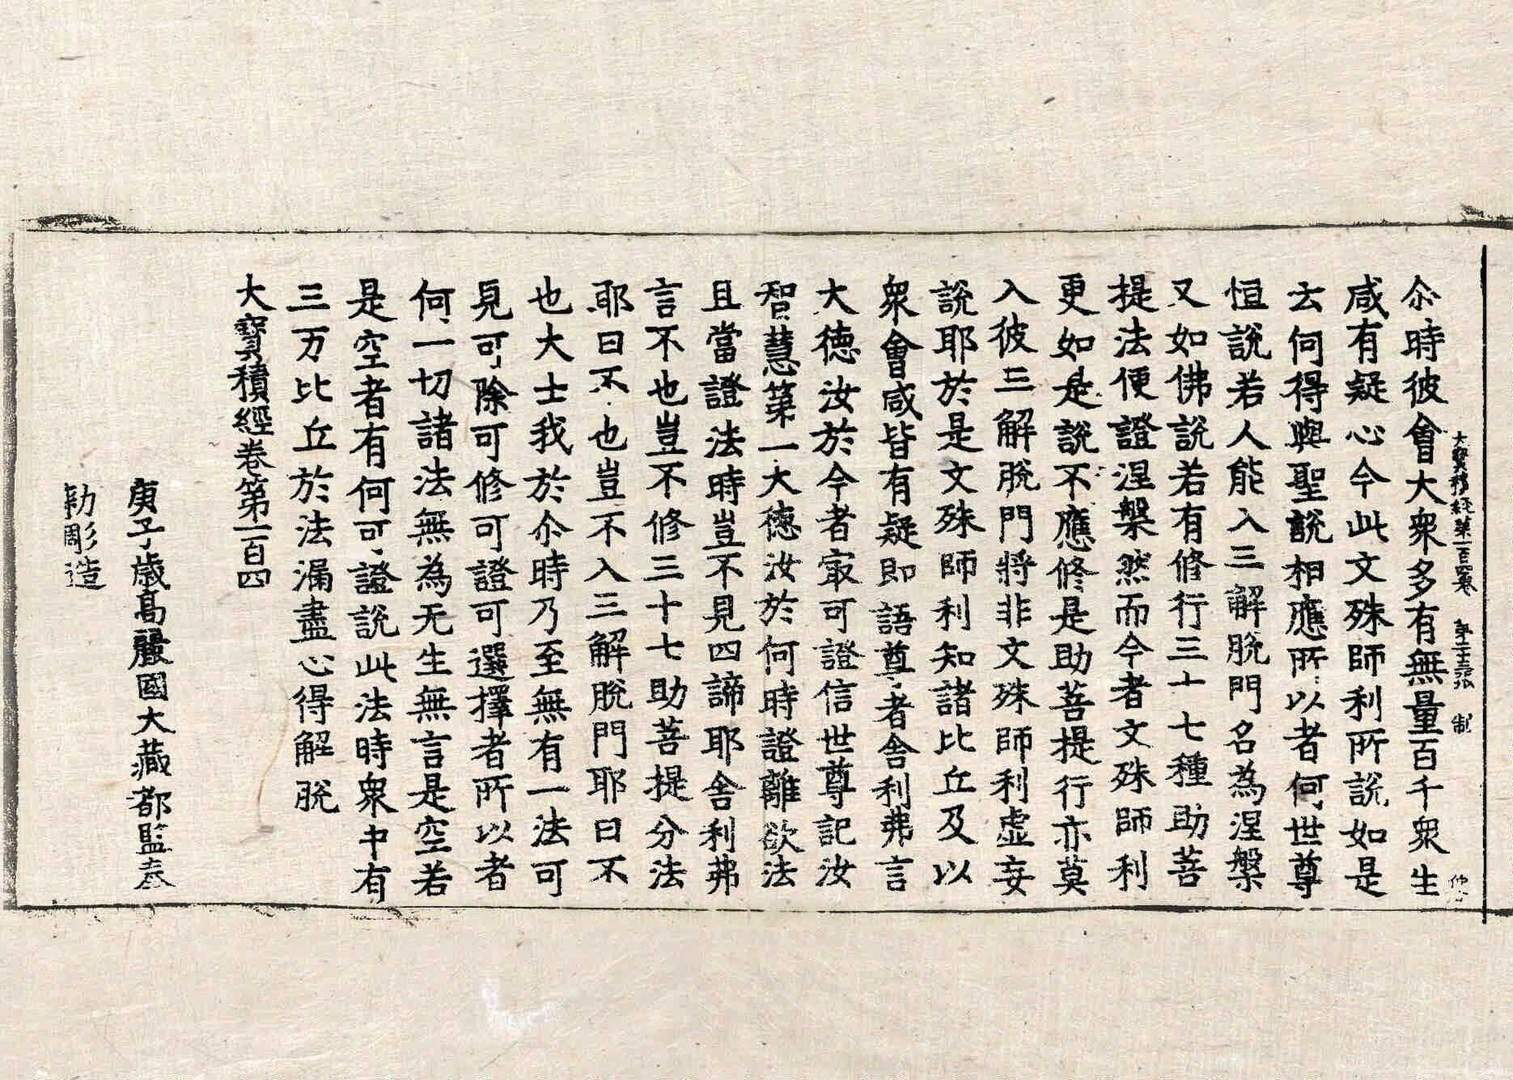 大寶積經第一百四卷 第二十五張 制
尒時彼會大衆多有無量百千衆生
咸有疑心今此文殊師利所說如是
去何得與聖說相應所以者何世尊
恒說若人能入三解脫門名為涅槃
又如佛說若有修行三十七種助菩
提法便證涅槃然而今者文殊師利
更如是說不應修是助菩提行亦莫
入彼三解脫門將非文殊師利虛妄
說耶於是文殊師利知諸比丘及以
衆會咸皆有疑即語尊者舍利弗言
大德汝於今者寂可證信世尊記汝
智慧第一大德汝於何時證離欲法
且當證法時豈不見四諦耶舍利弗
言不也豈不修三十七助菩提分法
耶曰不也豈不入三解脫門耶曰不
也大士我於尒時乃至無有一法可
見可除可修可證可選擇者所以者
何一切諸法無為无生無言是空若
是空者有何可證說此法時衆中有
三万比丘於法漏盡心得解脫
大寶積經卷第一百四
庚子歲高麗國大藏都監奉
勅彫造